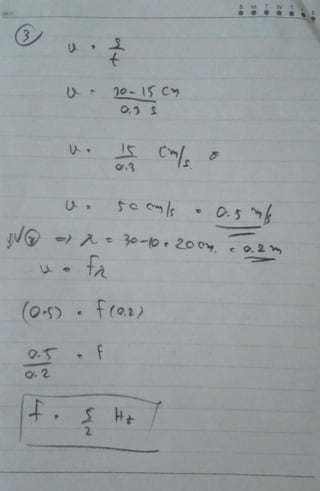 S M T W T F S
③
v = s/t
v = 30 - 15 cm / 0.3 s
v = 15/0.3 cm/s
v = 50 cm/s = 0.5 m/s
⇒ λ = 30-10 = 20 cm = 0.2 m
v = fλ
(0.5) = f(0.2)
0.5/0.2 = f
f = 5/2 Hz